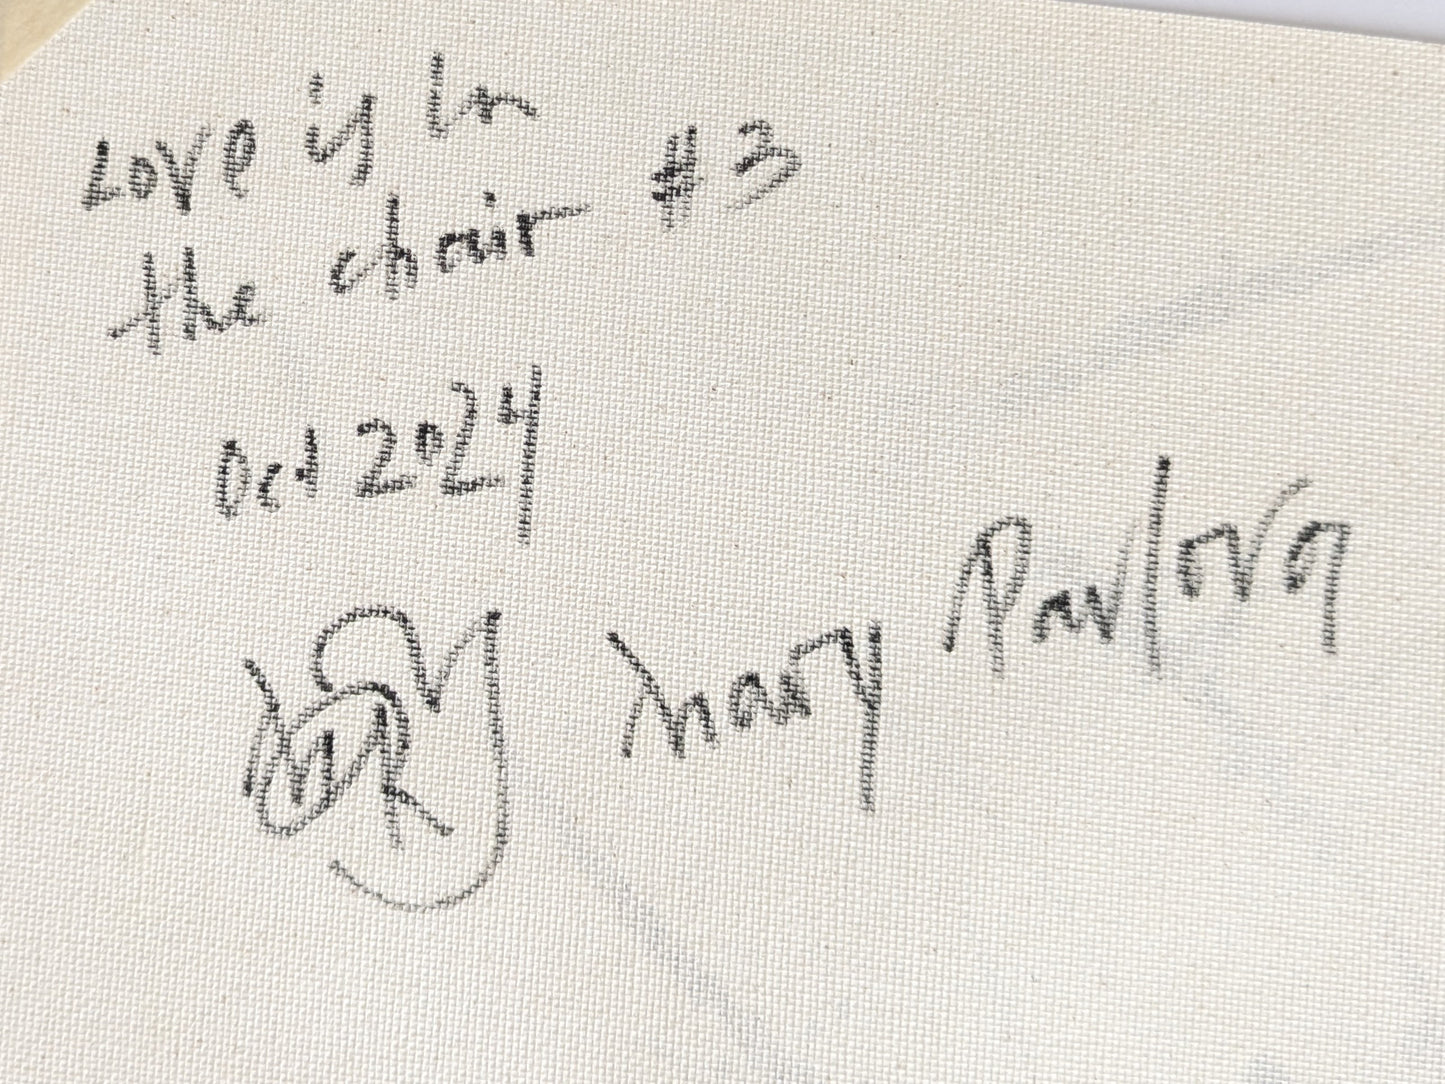 Love is in
the chair #3
Oct 2024
Mary Pavlova